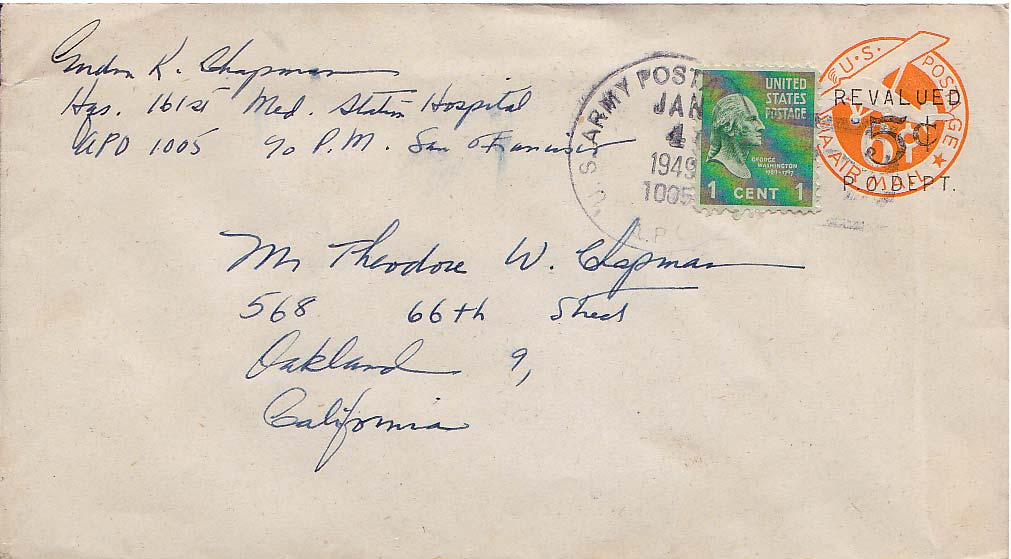 K. Chapman
Hqs. 161st Med. Station Hospital
APO 1005 c/o P.M. San Francisco
U.S. ARMY POSTAL
JAN
4
1949
1005
A.P.O.
UNITED
STATES
POSTAGE
GEORGE
WASHINGTON
1789-1797
1 CENT 1
U.S. POSTAGE
REVALUED
5¢
6¢
VIA AIR MAIL
P.O.DEPT.
Mr Theodore W. Chapman
568 66th Street
Oakland 9,
California